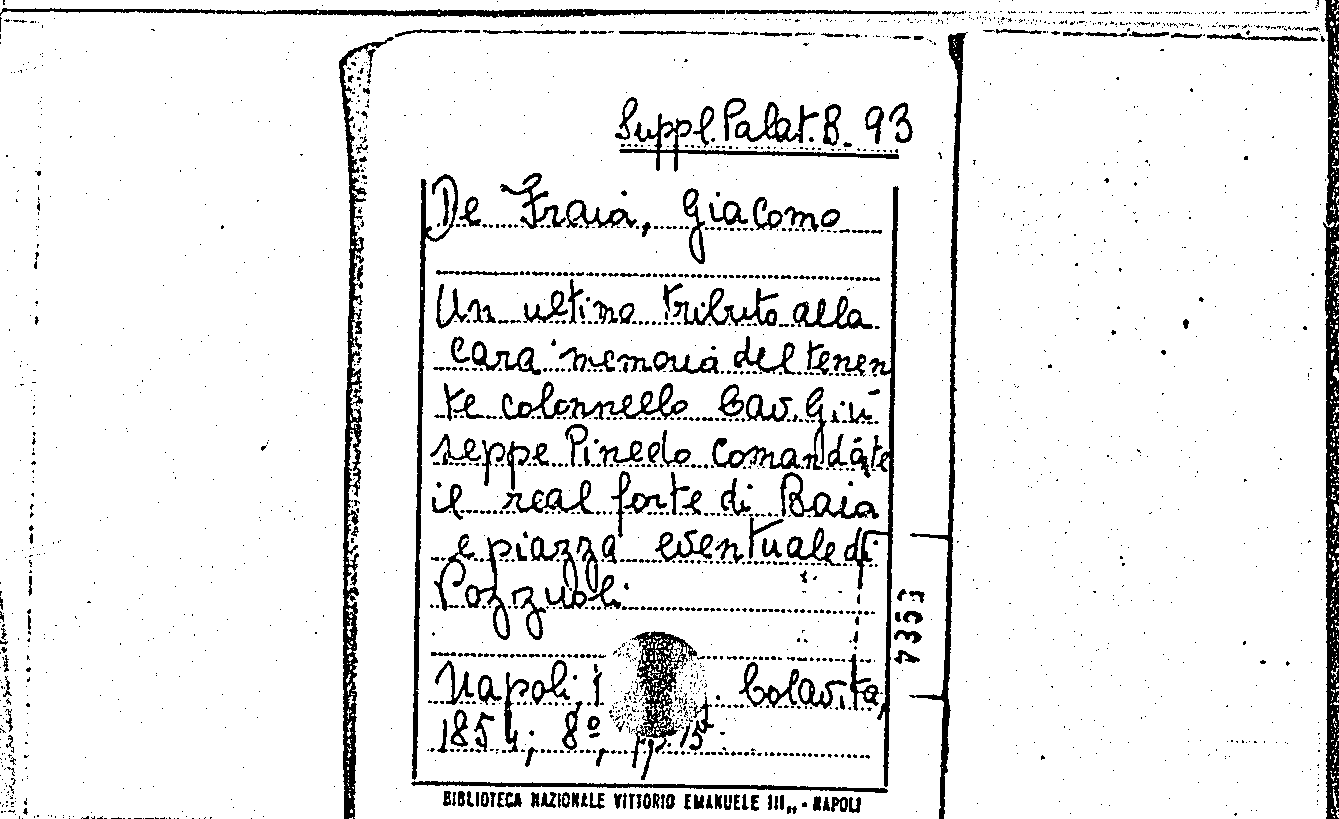 Suppl. Palat. B. 93
De Fraia, Giacomo
Un ultimo tributo alla
cara memoria del tenen
te colonnello Cav. Giu
seppe Pinedo comandãte
il real forte di Baia
e piazza eventuale di
Pozzuoli
Napoli, Colavita,
1854; 8º, pp. 15
BIBLIOTECA NAZIONALE VITTORIO EMANUELE III„ - NAPOLI